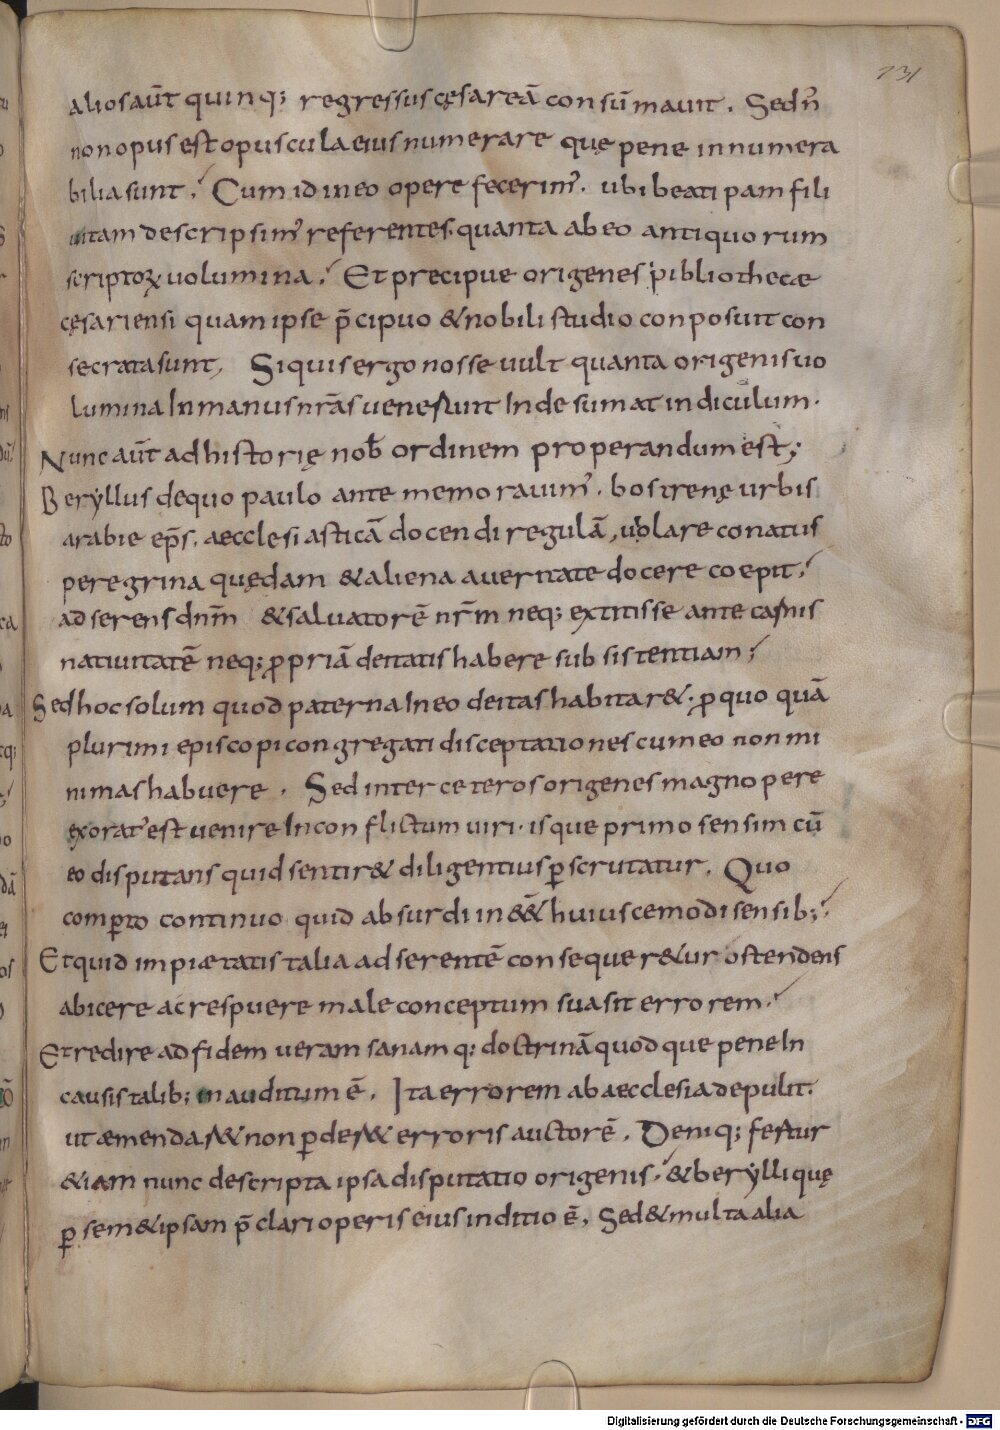 131
alios aūt quinq; regressus cęsareā consūmavit. Sed n̄
non opus est opuscula eius numerare quę pene innumera
bilia sunt. Cum id in eo opere fecerim᾿. ubi beati pamfili
uitam descripsim᾿ referentes. quanta ab eo antiquorum
scriptoꝝ uolumina. Et precipue origenes bibliothecæ
cęsariensi quam ipse p̄cipuo & nobili studio conposuit con
secrata sunt, Si quis ergo nosse vult quanta origenis uo
lumina In manus nr̄as venerunt Inde sumat indiculum.
Nunc aūt ad historię nob̄ ordinem properandum est;
Beryllus de quo paulo ante memoravim᾿. bostrenę urbis
arabie ep̄s. aecclesiasticā docendi regulā, violare conatus
peregrina quędam & aliena a veritate docere coepit,
adserens dnm̄ & salvatorē nr̄m neq; extitisse ante carnis
nativitatē neq; ꝓpriā deitatis habere subsistentiam;
Sed hoc solum quod paterna In eo deitas habitar&. ꝓ quo quā
plurimi episcopi congregati disceptationes cum eo non mi
nimas habuere. Sed inter ceteros origenes magnopere
exorat᾿ est venire In conflictum viri. isque primo sensim cū
eo disputans quid sentir& diligentius ꝑscrutatur. Quo
comꝑto continuo quid absurdi in&̄& huiuscemodi sensib;
Et quid impiætatis talia adserentē consequer&ur ostendens
abicere ac respuere male conceptum suasit errorem.
Et redire ad fidem veram sanamq; doctrinā quod que pene In
causis talib; inauditum ē. Ita errorem ab aecclesia depulit.
ut æmendass& non ꝑdess& erroris auctorē. Deniq; fertur
&iam nunc descripta ipsa disputatio origenis. & berylli quę
ꝑ sem&ipsam p̄clari operis eius inditio ē, Sed & multa alia
Digitalisierung gefördert durch die Deutsche Forschungsgemeinschaft - DFG